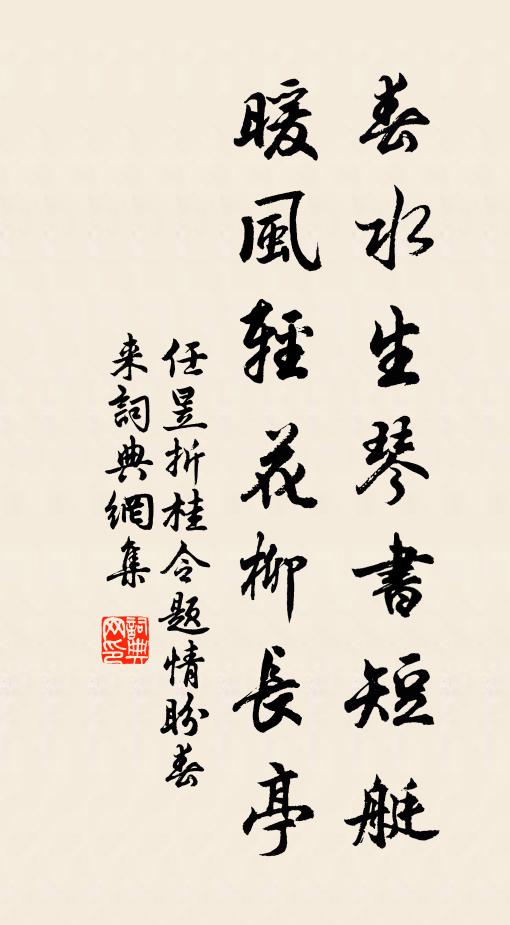 春水生琴書短艇
暖風輕花柳長亭
任昱折桂令題情盼春
来詞典網集
詞典网印